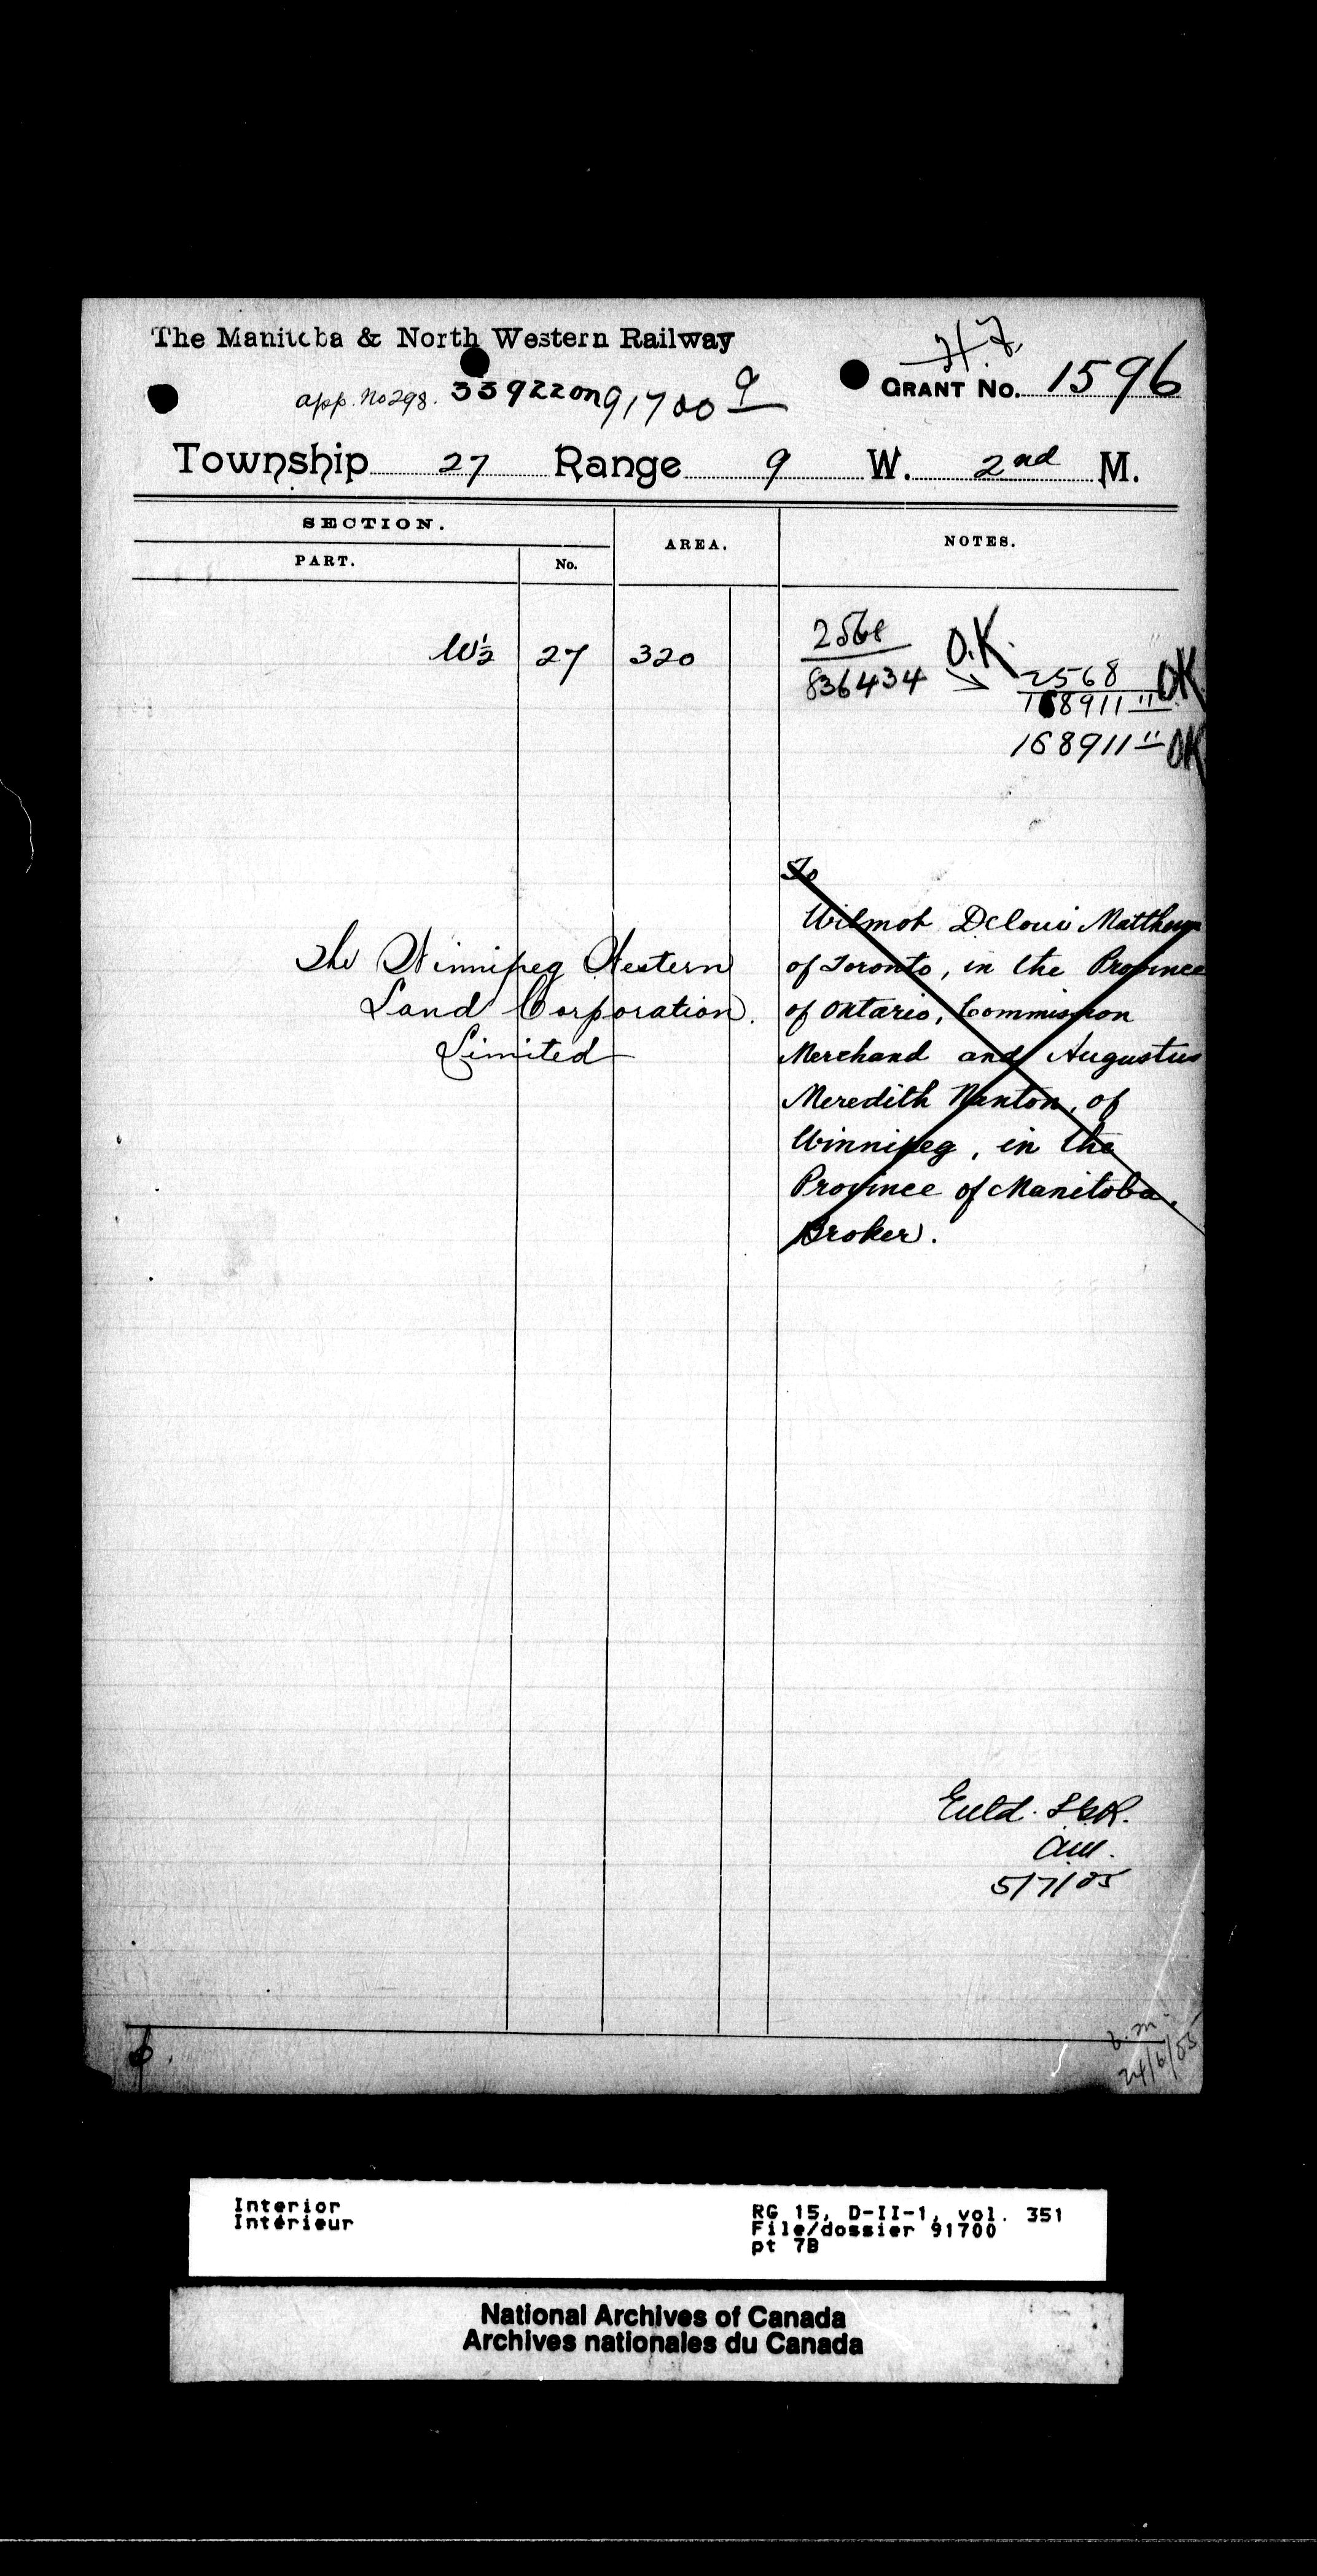 The Manitoba & North Western Railway
H.F.
GRANT No. 1596
app. No 298. 33922 on 91700 9
Township 27 Range 9 W. 2nd M.
SECTION.
AREA.
NOTES.
PART.
No.
W½ 27 320
2568
836434
O.K.
2568
168911 11 OK
168911 11 OK
To
Wilmot Deloui Matthews
of Toronto, in the Province
of Ontario, Commission
Merchand and Augustus
Meredith Nanton, of
Winnipeg, in the
Province of Manitoba,
Broker.
The Winnipeg Western
Land Corporation.
Limited
Entd. L.G.R.
5/7/05
24/6/05
Interior
Intérieur
RG 15, D-II-1, vol. 351
File/dossier 91700
pt 7B
National Archives of Canada
Archives nationales du Canada